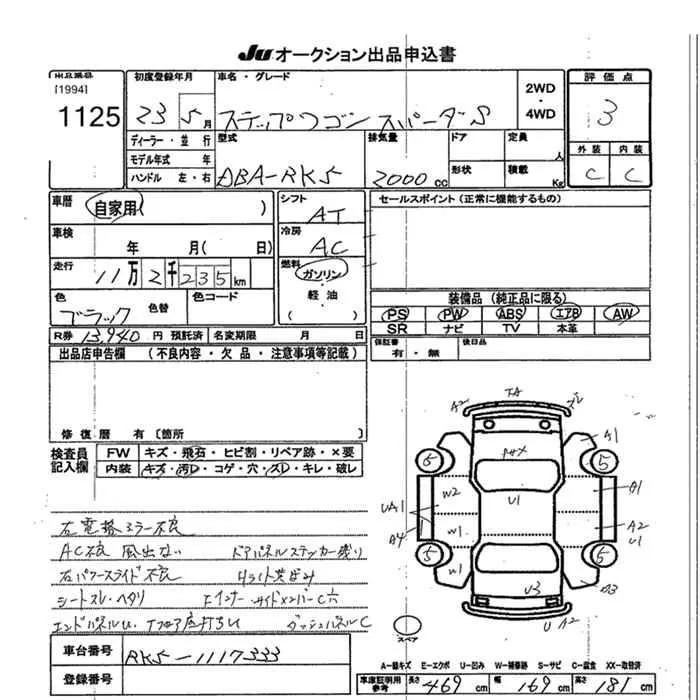 JU オークション出品申込書
出品番号 初度登録年月 車名・グレード 2WD・4WD 評価点
[1994]
1125 23 5月 ステップワゴン スパーダS 3
ディーラー・並行 型式 排気量 ドア 定員 人 外装 内装
モデル年式 年 形状 積載 Kg C C
ハンドル 左・右 DBA-RK5 2000cc
車歴 自家用( ) シフト AT セールスポイント(正常に機能するもの)
車検 年 月( 日) 冷房 AC
走行 11万2千235km 燃料 ガソリン・軽油
色 ブラック 色替 色コード 装備品(純正品に限る)
PS PW ABS エアB AW
SR ナビ TV 本革
R券 13,940 円 預託済 名変期限 月 日 保証書 有・無 後日品
出品店申告欄 (不良内容・欠品・注意事項等記載)
修復歴 有〔箇所
検査員記入欄 FW キズ・飛石・ヒビ割・リペア跡・×要
内装 キズ・汚レ・コゲ・穴・スレ・キレ・破レ
A2 TA A1
5 5
W2 U1 A1
UA1 W1 A2 U1
A4
5 W1 5
U3 A3
U A2
スペア
右電格ミラー不良
AC不良 風出ない ドアパネルステッカー残り
右パワースライド不良
シートスレ・ヘタリ
ダッシュパネルC
車台番号 RK5-1117333
登録番号
A-線キズ E-エクボ U-凹み W-補修跡 S-サビ C-腐食 XX-取替済
車庫証明用参考 長さ 469 cm 幅 169 cm 高さ 181 cm